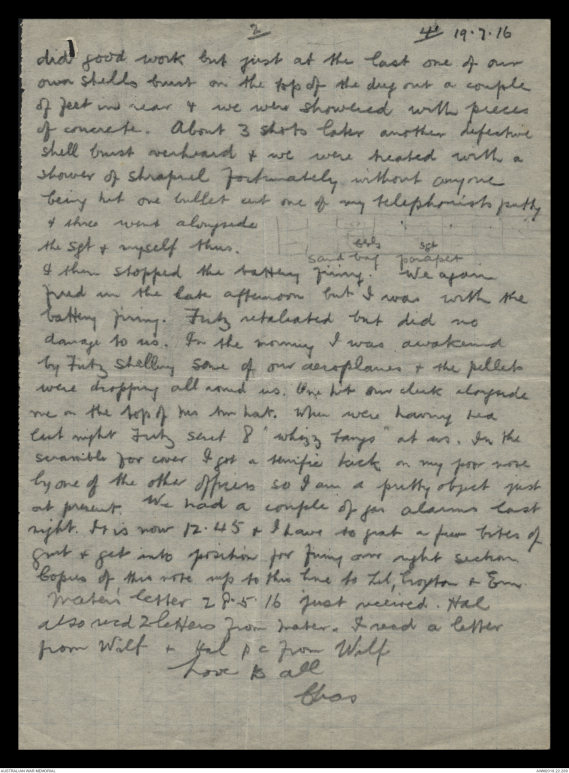 2
4th 19.7.16
did good work but just at the last one of our
own shells burst on the top of the dug out a couple
of feet in rear & we were showered with pieces
of concrete. About 3 shots later another defective
shell burst overheard & we were treated with a
shower of shrapnel fortunately without anyone
being hit one bullet cut one of my telephonists putty
& three went alongside
the sgt & myself thus.
sgt
sand bag parapet
& then stopped the battery firing. We again
fired in the late afternoon but I was with the
battery firing. Fritz retaliated but did no
damage to us. In the morning I was awakened
by Fritz shelling some of our aeroplanes & the pellets
were dropping all round us. One hit our clerk alongside
me on the top of his tin hat. When were having tea
last night Fritz sent 8 "whizz bangs" at us. In the
scramble for cover I got a terrific back on my poor nose
by one of the other officers so I am a pretty object just
at present. We had a couple of gas alarms last
night. It is now 12.45 & I have to grab a few bites of
grub & get into position for firing our right section
Copies of this note up to this line to Lil, Croyton & Ern
Mater's letter 28.5.16 just received. Hal
also recd 2 letters from mater. I read a letter
from Wilf & Hal p c from Wilf
Love to all
Chas
AUSTRALIAN WAR MEMORIAL